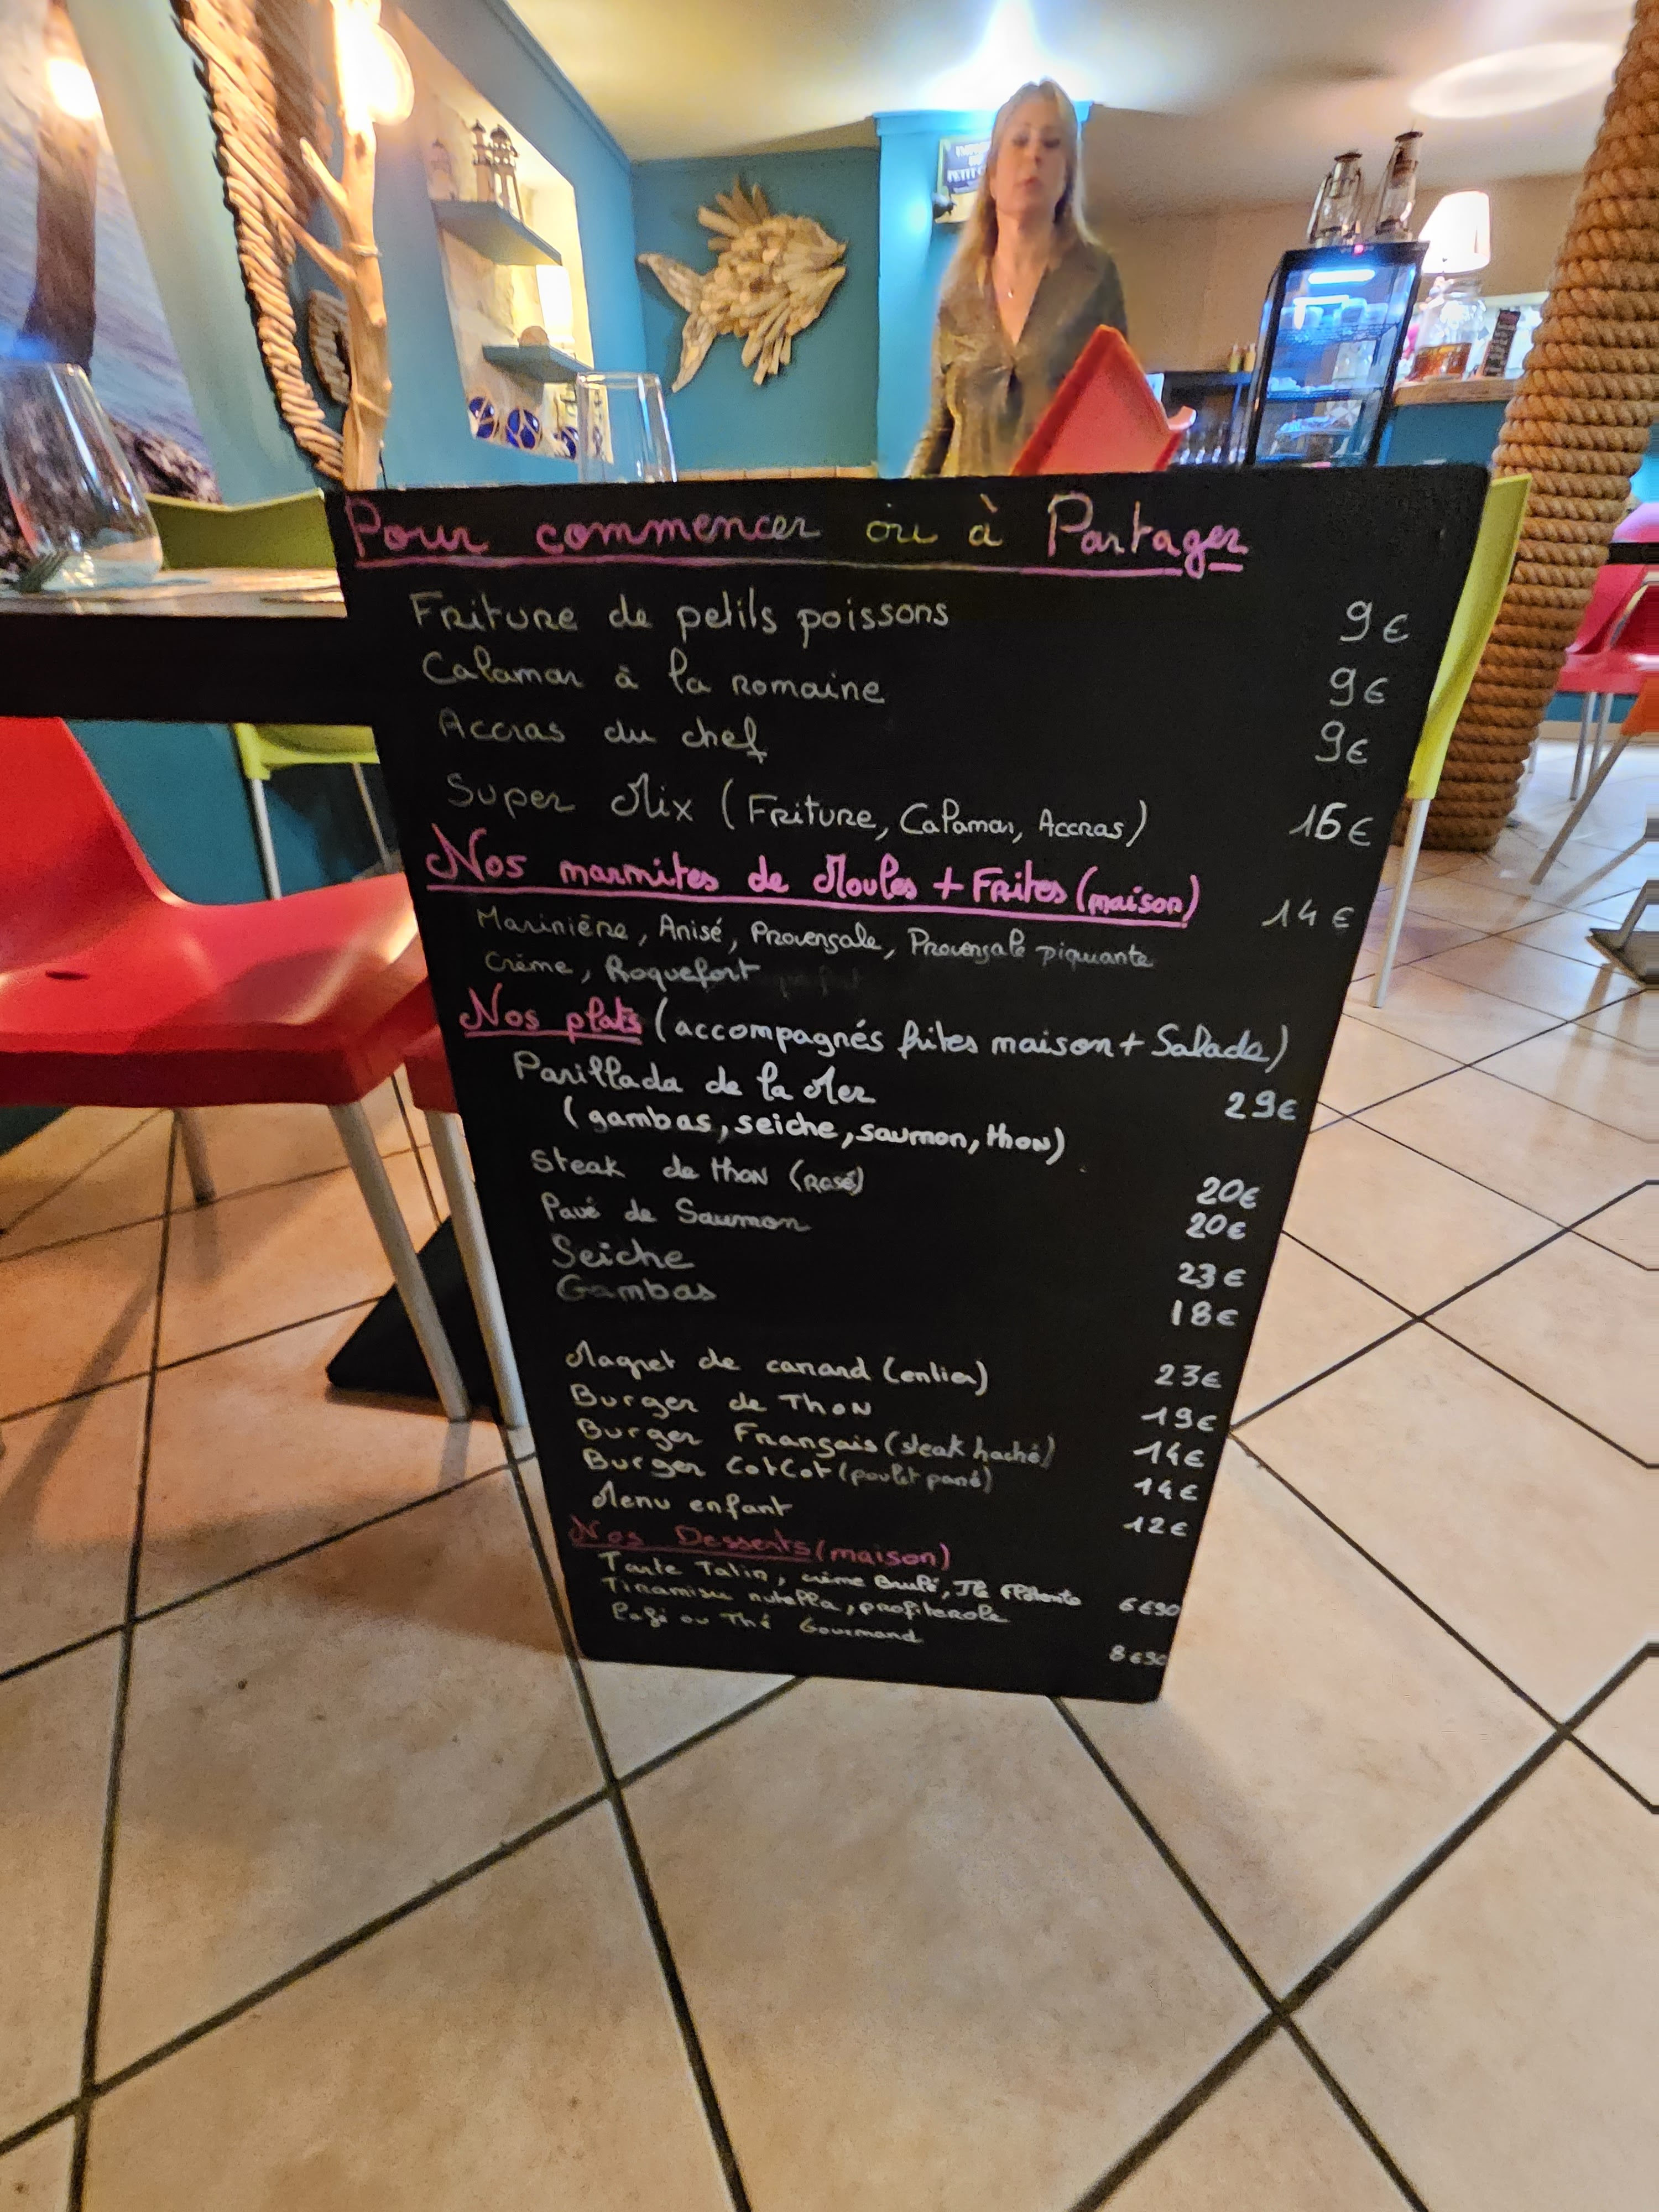 Pour commencer ou à Partager
Friture de petits poissons 9€
Calamar à la romaine 9€
Accras du chef 9€
Super Mix (Friture, Calamar, Accras) 16€
Nos marmites de Moules + Frites (maison) 14€
Marinière, Anisé, Provençale, Provençale piquante
Crème, Roquefort
Nos plats (accompagnés frites maison + Salade)
Parillada de la Mer 29€
(gambas, seiche, saumon, thon)
Steak de thon (rosé) 20€
Pavé de Saumon 20€
Seiche 23€
Gambas 18€
Magret de canard (entier) 23€
Burger de Thon 19€
Burger Français (steak haché) 14€
Burger CotCot (poulet pané) 14€
Menu enfant 12€
Nos Desserts (maison)
Tarte Tatin, crème Brulé, Ile flottante 6€90
Tiramisu nutella, profiterole
Café ou Thé Gourmand 8€90